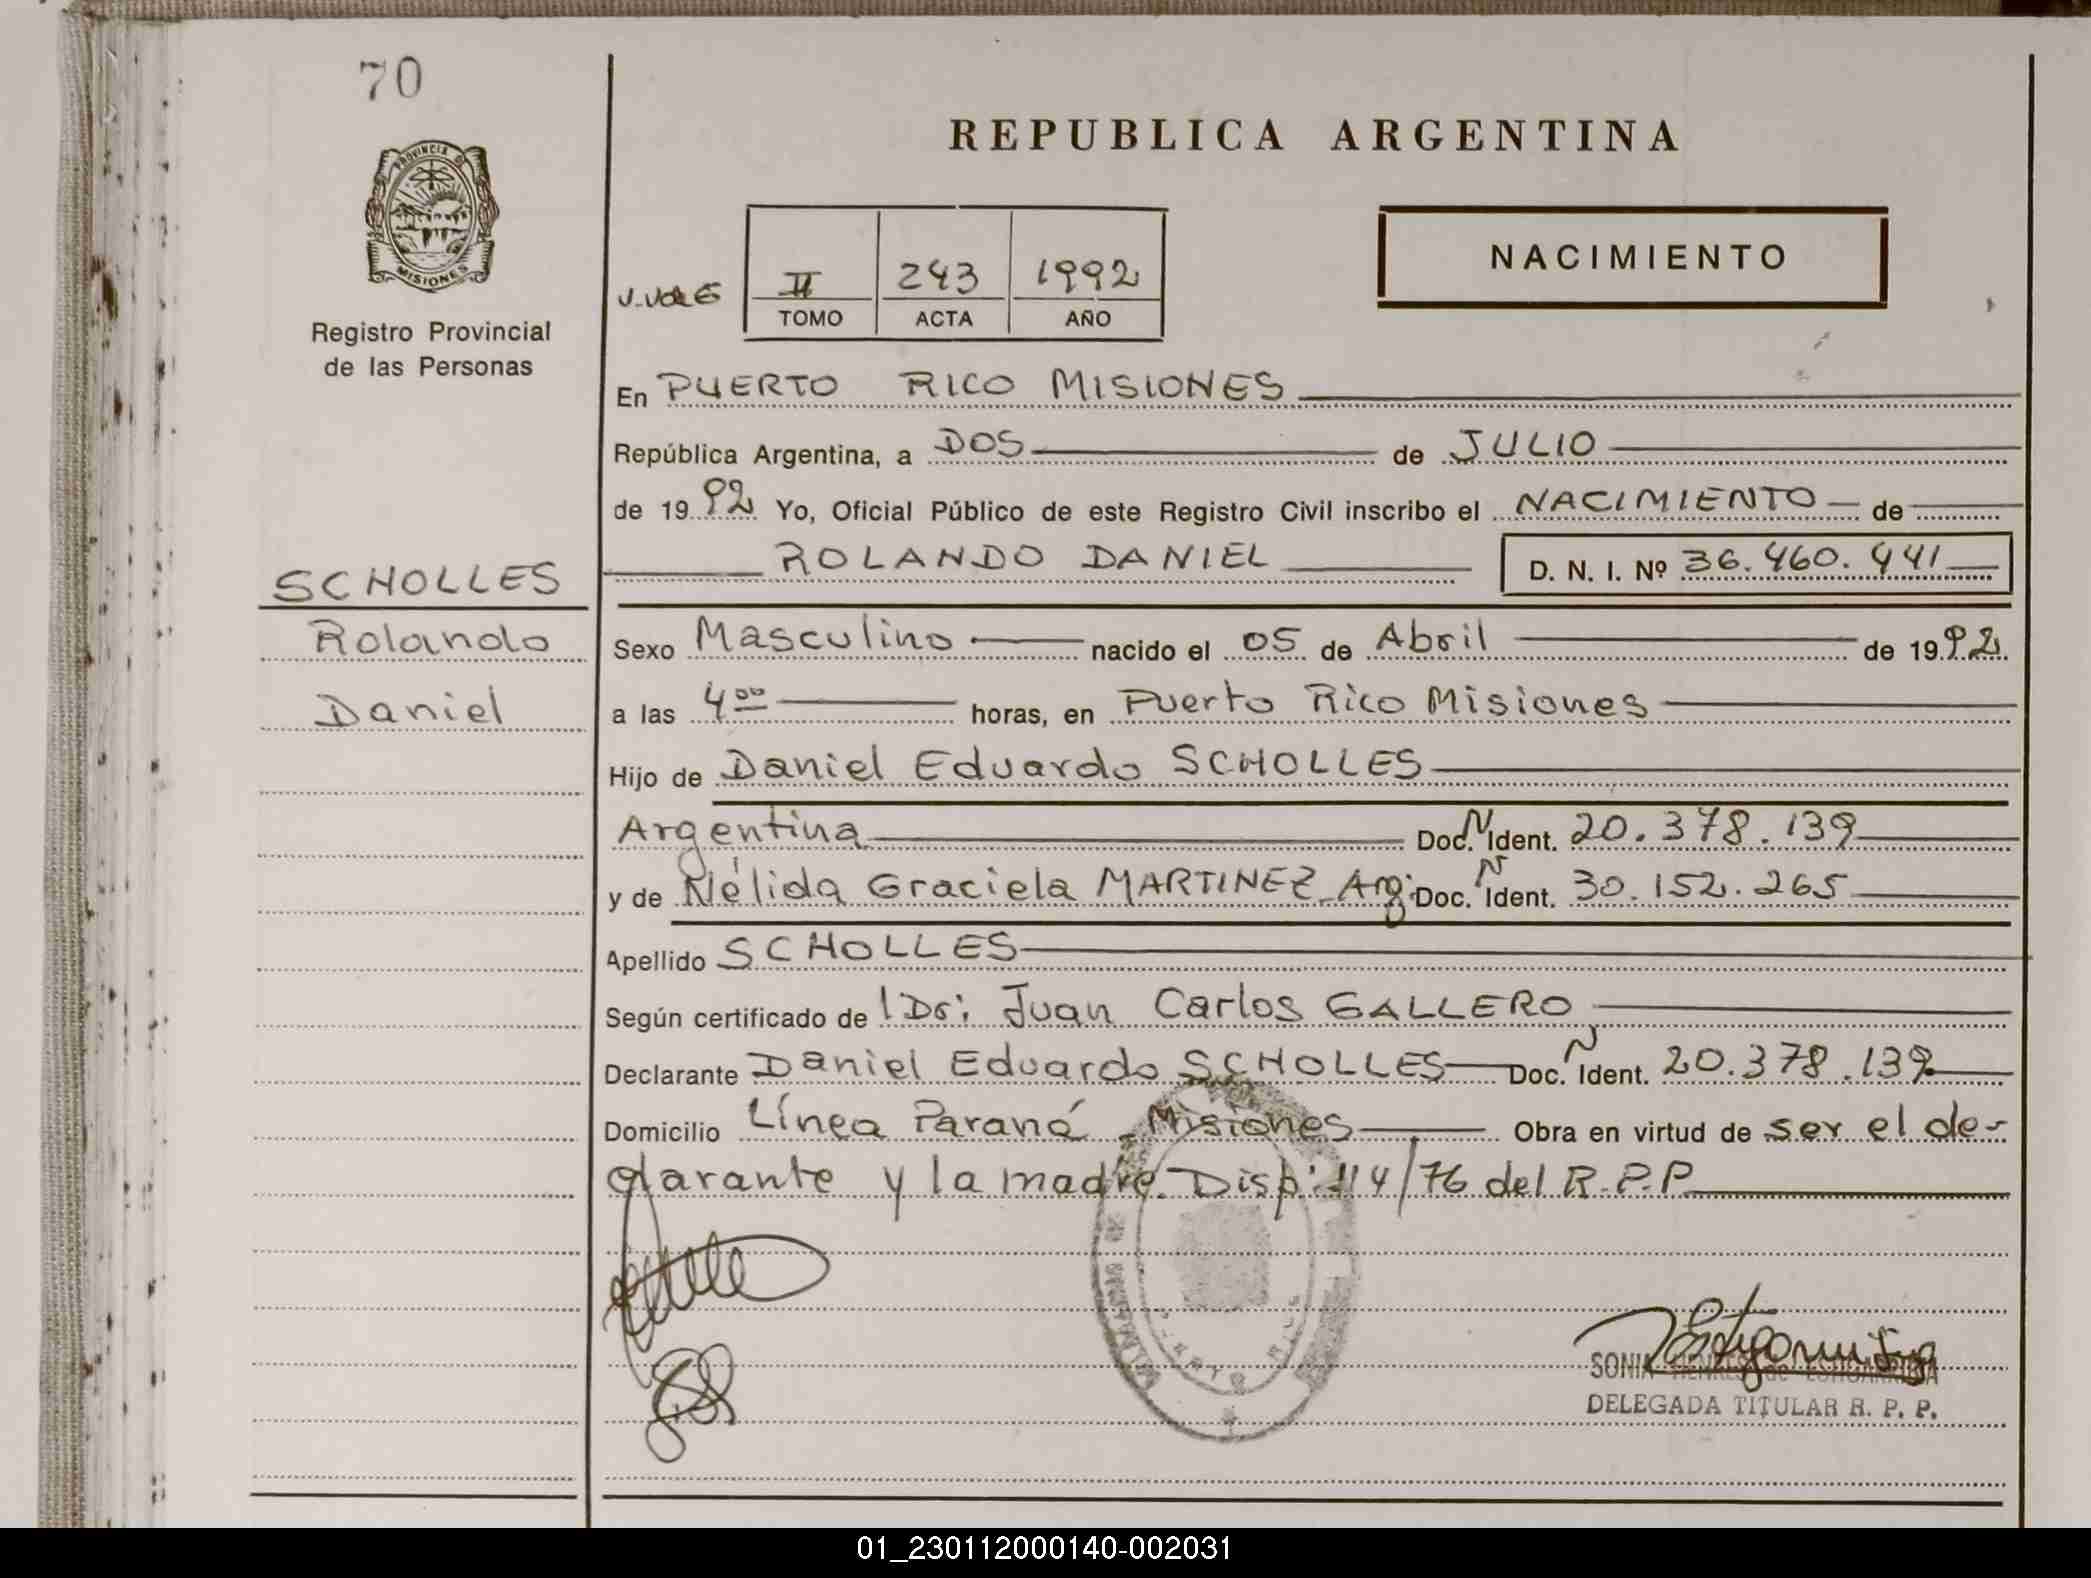 70
PROVINCIA DE
MISIONES
Registro Provincial
de las Personas
SCHOLLES
Rolando
Daniel
REPUBLICA ARGENTINA
II 243 1992
TOMO ACTA AÑO
NACIMIENTO
En PUERTO RICO MISIONES
República Argentina, a DOS de JULIO
de 1992 Yo, Oficial Público de este Registro Civil inscribo el NACIMIENTO de
ROLANDO DANIEL D. N. I. Nº 36.460.441
Sexo Masculino nacido el 05 de Abril de 1992
a las 4 00 horas, en Puerto Rico Misiones
Hijo de Daniel Eduardo SCHOLLES
Argentina Doc. N Ident. 20.378.139
y de Nélida Graciela MARTINEZ Arg. Doc. N Ident. 30.152.265
Apellido SCHOLLES
Según certificado de Dr: Juan Carlos GALLERO
Declarante Daniel Eduardo SCHOLLES Doc. N Ident. 20.378.139
Domicilio Línea Paraná - Misiones Obra en virtud de ser el de-
clarante y la madre. Disp: 114/76 del R.P.P.
PUERTO RICO
SONIA
DELEGADA TITULAR R. P. P.
01_230112000140-002031